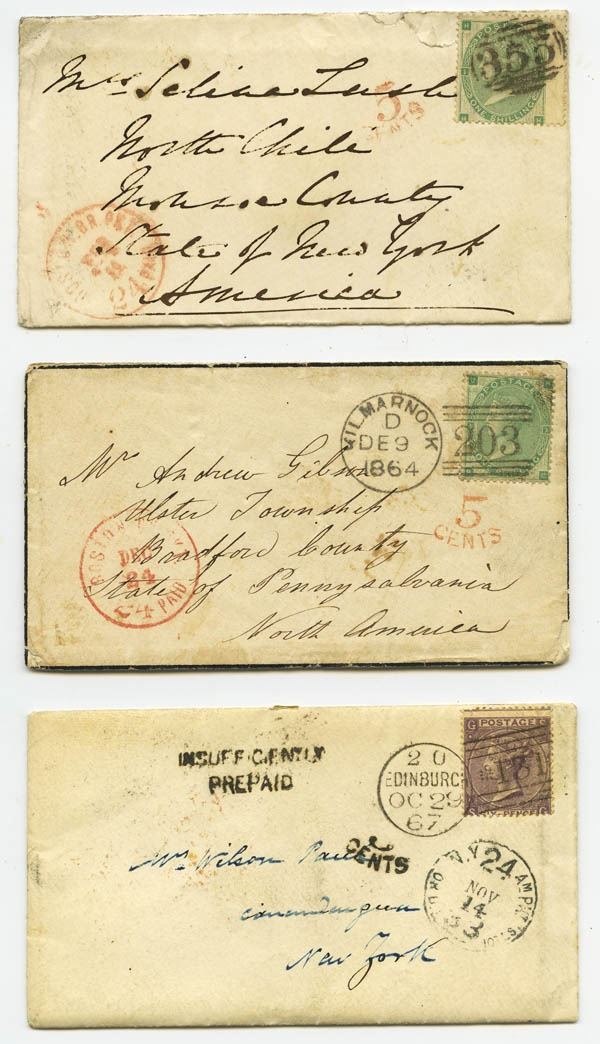 355
POSTAGE
ONE SHILLING
Mrs Selina Lush
5
CENTS
North Chile
Monroe County
State of New York
America
BR. PKT
24
PAID
KILMARNOCK
D
DE 9
1864
203
POSTAGE
5
CENTS
Mr Andrew Gibson
Ulster Township
Bradford County
State of Pennysalvania
North America
BOSTON
DEC
24
24
PAID
INSUFFICIENTLY
PREPAID
20
EDINBURGH
OC 29
67
G POSTAGE G
131
SIX PENCE
2
CENTS
Mr Wilson
Canandaigua
New York
N.Y. 24 AM. PKT
NOV
14
33